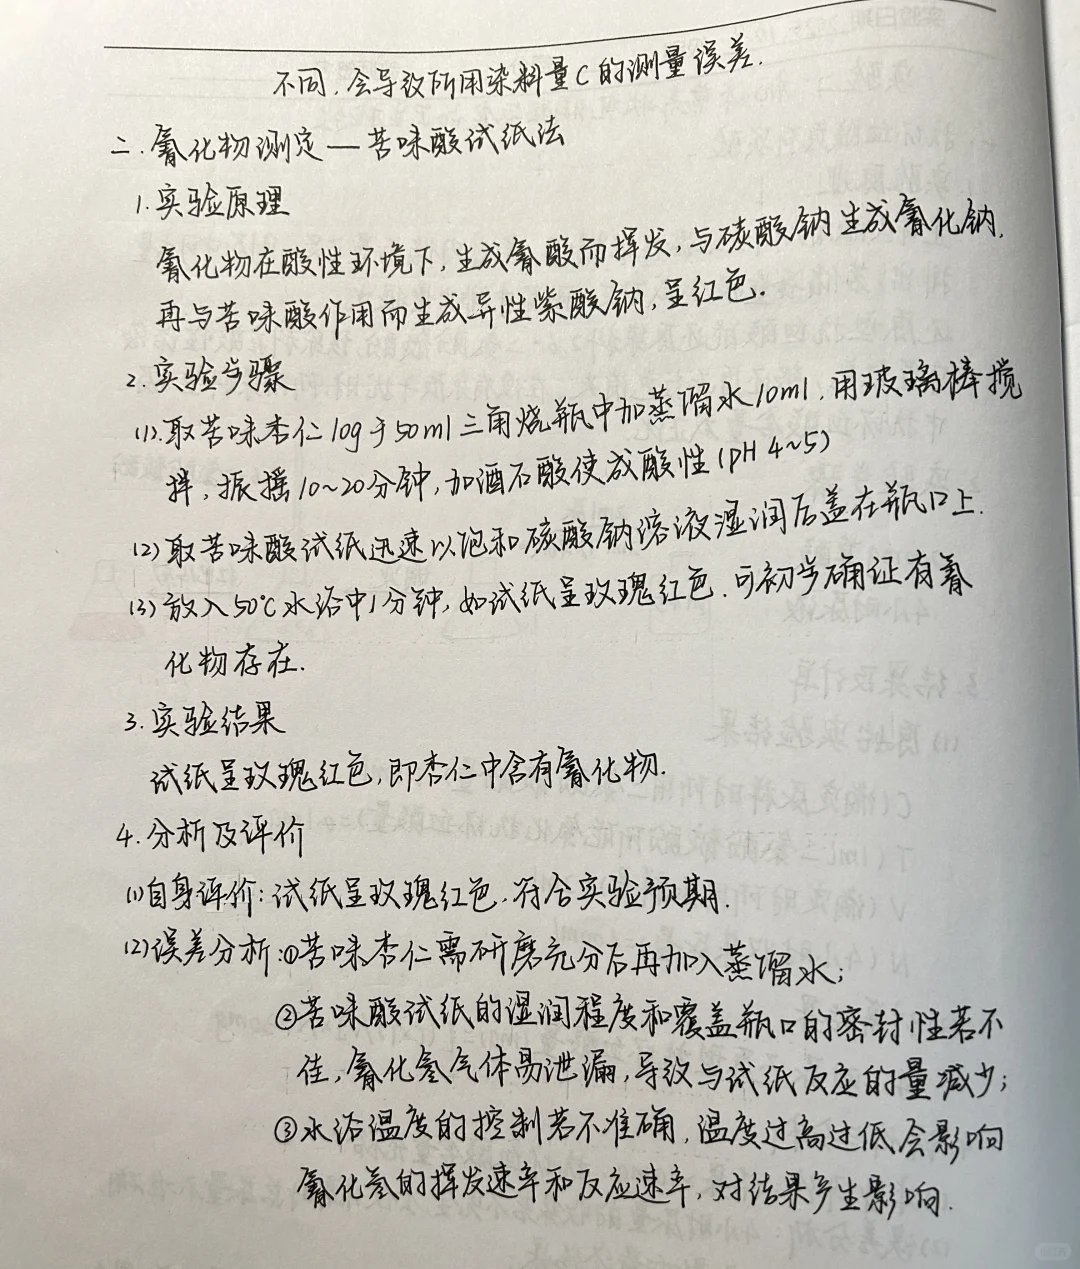 不同，会导致所用染料量C的测量误差.
二.氰化物测定—苦味酸试纸法
1.实验原理
氰化物在酸性环境下，生成氰酸而挥发，与碳酸钠生成氰化钠，
再与苦味酸作用而生成异性紫酸钠，呈红色.
2.实验步骤
(1).取苦味杏仁10g于50ml三角烧瓶中加蒸馏水10ml，用玻璃棒搅
拌，振摇10~20分钟，加酒石酸使成酸性(pH 4~5)
(2)取苦味酸试纸迅速以饱和碳酸钠溶液湿润后盖在瓶口上.
(3)放入50℃水浴中1分钟，如试纸呈玫瑰红色.可初步确证有氰
化物存在.
3.实验结果
试纸呈玫瑰红色，即杏仁中含有氰化物.
4.分析及评价
(1)自身评价：试纸呈玫瑰红色.符合实验预期.
(2)误差分析：①苦味杏仁需研磨充分后再加入蒸馏水；
②苦味酸试纸的湿润程度和覆盖瓶口的密封性若不
佳，氰化氢气体易泄漏，导致与试纸反应的量减少；
③水浴温度的控制若不准确，温度过高过低会影响
氰化氢的挥发速率和反应速率，对结果产生影响.